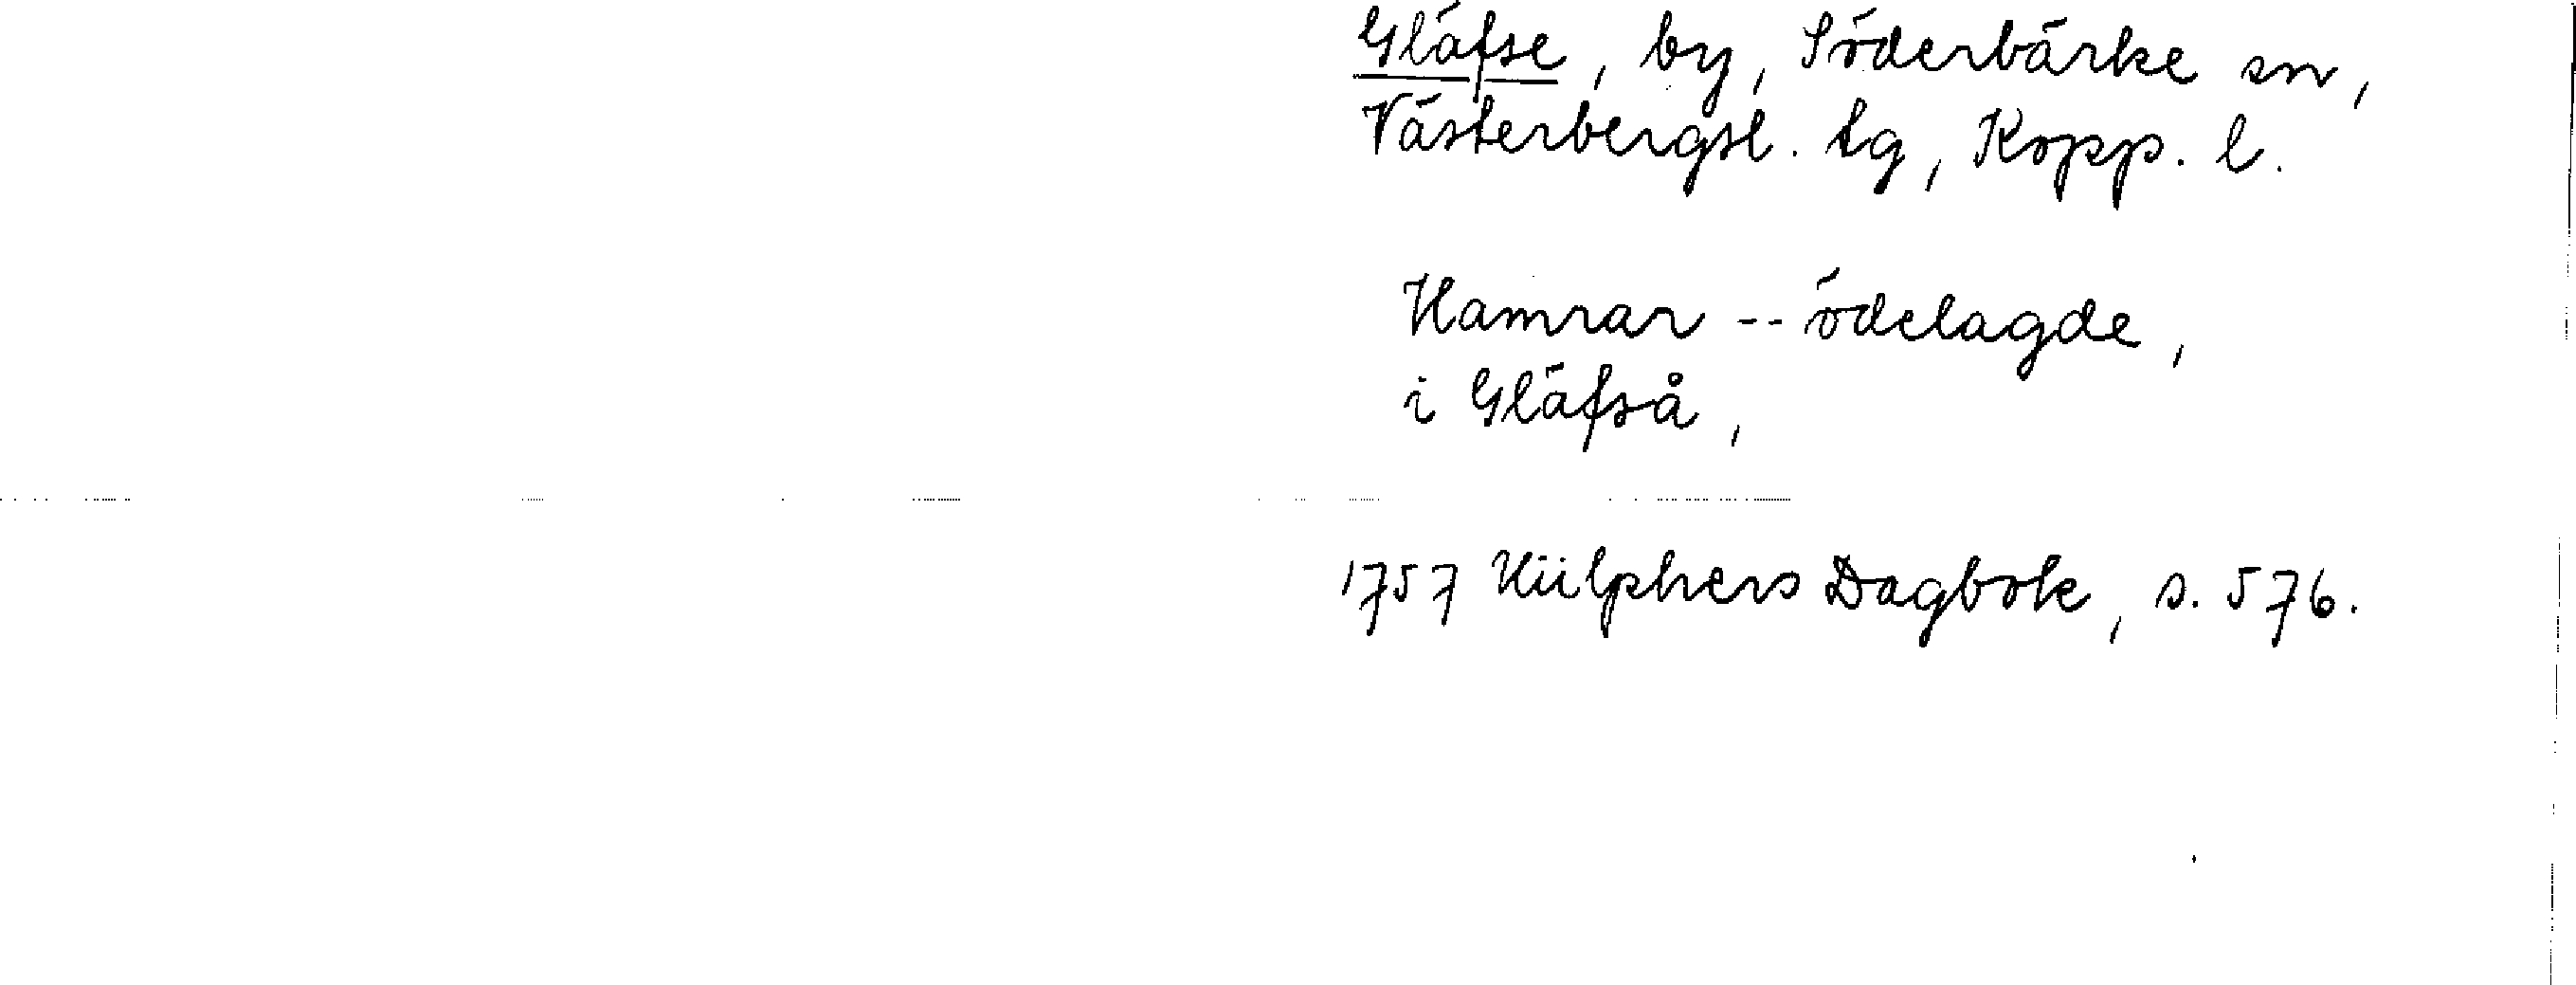 Gläfse, by, Söderbärke sn,
Västerbergsl. tg, Kopp. l.
Hamrar -- ödelagde,
i Gläfså,
1757 Hülphers Dagbok, s. 576.